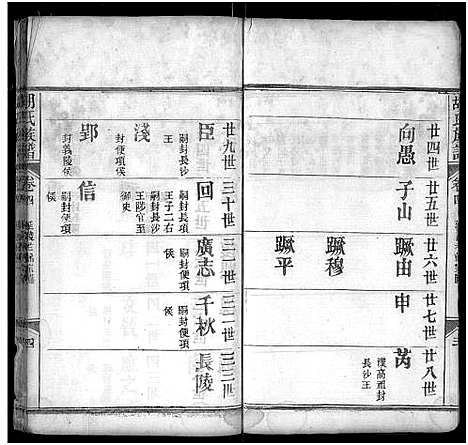 胡氏族譜
卷四
廿四世
向愚
廿五世
子山
廿六世
蹶由
蹶穆
蹶平
廿七世
申
廿八世
芮
漢高祖封
長沙王
廿九世
臣
嗣封長沙
王
淺
封便項
侯
郢
封義陵侯
三十世
回
嗣封長沙
王子二右
信
王陟官至
御史
三十一世
廣志
嗣封便項
侯
三十二世
千秋
嗣封便項
侯
三十三世
長陵
胡氏族譜
卷四
四